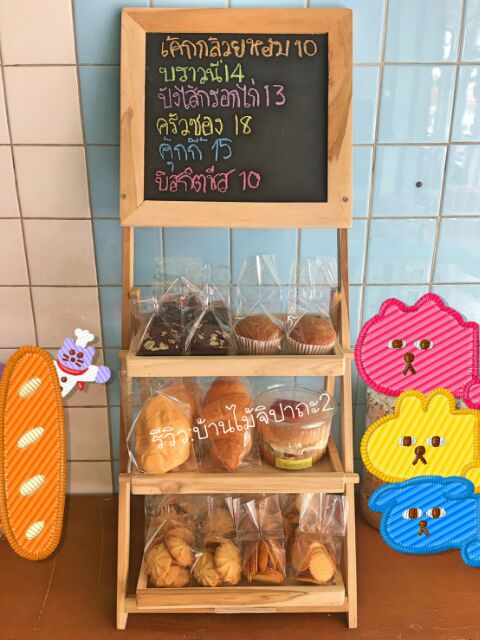 เค้กกล้วยหอม 10
บราวนี่ 14
ปังไส้กรอกไก่ 13
ครัวซอง 18
คุ้กกี้ 15
บิสกิตชีส 10
รีวิว:บ้านไม้จิปาถะ2